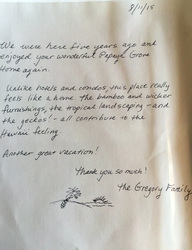 8/11/15
We were here five years ago and
enjoyed your wonderful Papaya Grove
Home again.
Unlike hotels and condos, this place really
feels like a home. The bamboo and wicker
furnishings, the tropical landscaping - and
the geckos! - all contribute to the
Hawaii feeling.
Another great vacation!
Thank you so much!
The Gregory Family